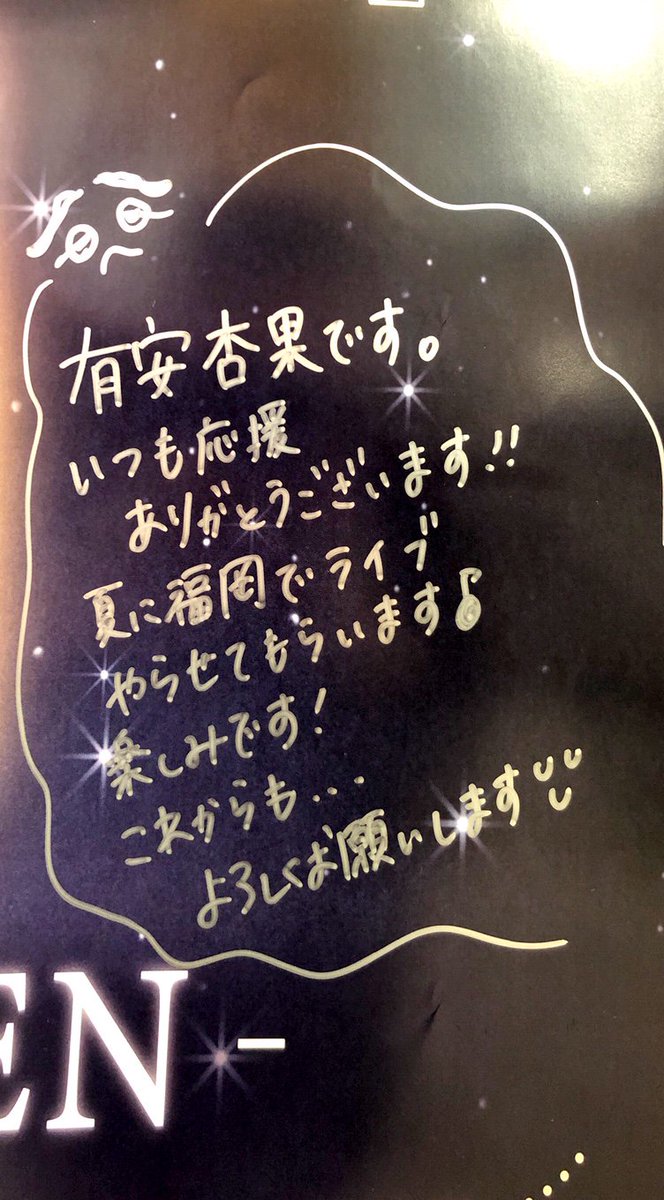 有安杏果です。
いつも応援
ありがとうございます!!
夏に福岡でライブ
やらせてもらいます♪
楽しみです!
これからも...
よろしくお願いします
EN-